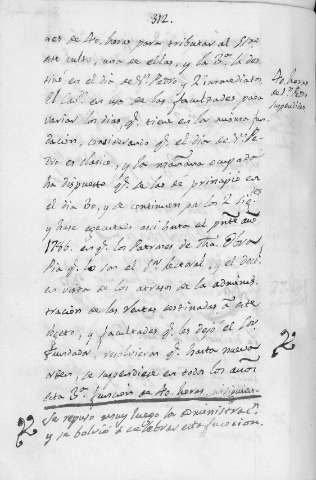 312.
nes de 40. horas para tributar al Sor.
este culto, una de ellas, y la 3a. la des
tinó en el dia de Sn. Pedro, y 2 inmediatos,
el Cabdo. en uso de las facultades para
variar los dias, q. tiene en la misma fun
dacion, considerando q. el dia de Sn. Pe
dro es clasico, y la mañana ocupada
ha dispuesto q. se las de principio en
el dia 30, y se continuen pa. los 2 sigtes
y hase executado assi hasta el prste. año
1766. en q. los Patronos de dha. Obra
Pia q. lo son el Sr. Lectoral, y el Deel.
en vista de los atrasos de la adminis
tracion de las Rentas destinadas a este
objeto, y facultades q. les dejó el Sor.
fundador, resolvieron q. hasta nueva
orden, se suspendiese en todos los años
esta 3a. funcion de 40. horas,
Se repuso muy luego la administracn.
y se bolvió a celebrar esta funcion.
40. horas
de Sn. Pedro
suspendidas